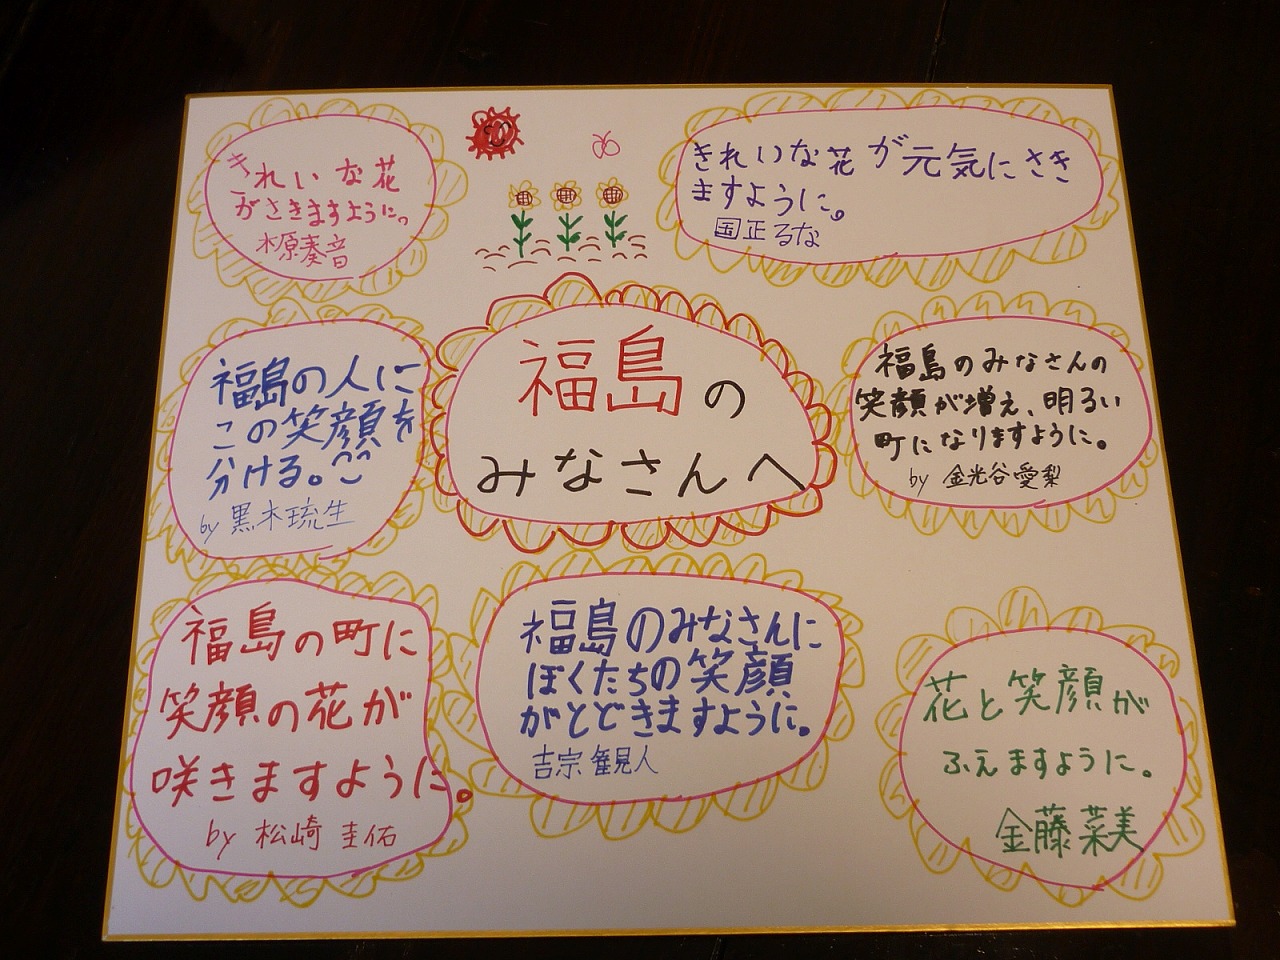 きれいな花
がさきますように。
木原奏音
きれいな花が元気にさき
ますように。
国正るな
福島の
みなさんへ
福島の人に
この笑顔を
分ける。
by 黒木琉生
福島のみなさんの
笑顔が増え、明るい
町になりますように。
by 金光谷愛梨
福島の町に
笑顔の花が
咲きますように。
by 松崎 圭佑
福島のみなさんに
ぼくたちの笑顔
がとどきますように。
吉宗
花と笑顔が
ふえますように。
金藤菜美